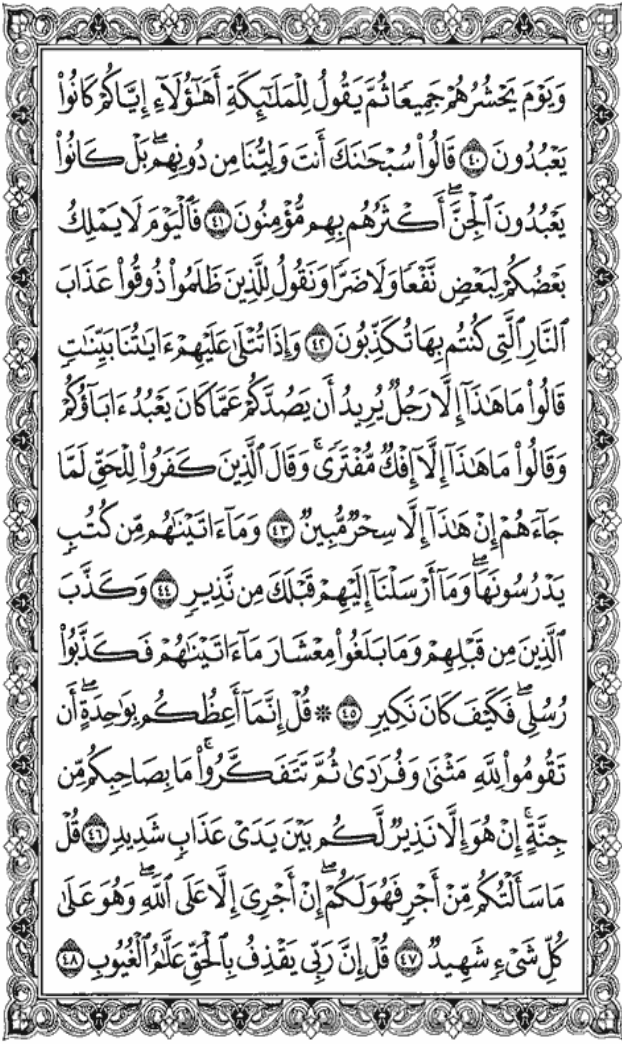 وَيَوْمَ يَحْشُرُهُمْ جَمِيعًا ثُمَّ يَقُولُ لِلْمَلَٰٓئِكَةِ أَهَٰٓؤُلَآءِ إِيَّاكُمْ كَانُوا۟
يَعْبُدُونَ ٤٠ قَالُوا۟ سُبْحَٰنَكَ أَنتَ وَلِيُّنَا مِن دُونِهِمۖ بَلْ كَانُوا۟
يَعْبُدُونَ ٱلْجِنَّۖ أَكْثَرُهُم بِهِم مُّؤْمِنُونَ ٤١ فَٱلْيَوْمَ لَا يَمْلِكُ
بَعْضُكُمْ لِبَعْضٍ نَّفْعًا وَلَا ضَرًّا وَنَقُولُ لِلَّذِينَ ظَلَمُوا۟ ذُوقُوا۟ عَذَابَ
ٱلنَّارِ ٱلَّتِى كُنتُم بِهَا تُكَذِّبُونَ ٤٢ وَإِذَا تُتْلَىٰ عَلَيْهِمْ ءَايَٰتُنَا بَيِّنَٰتٍ
قَالُوا۟ مَا هَٰذَآ إِلَّا رَجُلٌ يُرِيدُ أَن يَصُدَّكُمْ عَمَّا كَانَ يَعْبُدُ ءَابَآؤُكُمْ
وَقَالُوا۟ مَا هَٰذَآ إِلَّآ إِفْكٌ مُّفْتَرًىۚ وَقَالَ ٱلَّذِينَ كَفَرُوا۟ لِلْحَقِّ لَمَّا
جَآءَهُمْ إِنْ هَٰذَآ إِلَّا سِحْرٌ مُّبِينٌ ٤٣ وَمَآ ءَاتَيْنَٰهُم مِّن كُتُبٍ
يَدْرُسُونَهَاۖ وَمَآ أَرْسَلْنَآ إِلَيْهِمْ قَبْلَكَ مِن نَّذِيرٍ ٤٤ وَكَذَّبَ
ٱلَّذِينَ مِن قَبْلِهِمْ وَمَا بَلَغُوا۟ مِعْشَارَ مَآ ءَاتَيْنَٰهُمْ فَكَذَّبُوا۟
رُسُلِىۖ فَكَيْفَ كَانَ نَكِيرِ ٤٥ ۞ قُلْ إِنَّمَآ أَعِظُكُم بِوَٰحِدَةٍۖ أَن
تَقُومُوا۟ لِلَّهِ مَثْنَىٰ وَفُرَٰدَىٰ ثُمَّ تَتَفَكَّرُوا۟ۚ مَا بِصَاحِبِكُم مِّن
جِنَّةٍۚ إِنْ هُوَ إِلَّا نَذِيرٌ لَّكُم بَيْنَ يَدَىْ عَذَابٍ شَدِيدٍ ٤٦ قُلْ
مَا سَأَلْتُكُم مِّنْ أَجْرٍ فَهُوَ لَكُمْۖ إِنْ أَجْرِىَ إِلَّا عَلَى ٱللَّهِۖ وَهُوَ عَلَىٰ
كُلِّ شَىْءٍ شَهِيدٌ ٤٧ قُلْ إِنَّ رَبِّى يَقْذِفُ بِٱلْحَقِّ عَلَّٰمُ ٱلْغُيُوبِ ٤٨